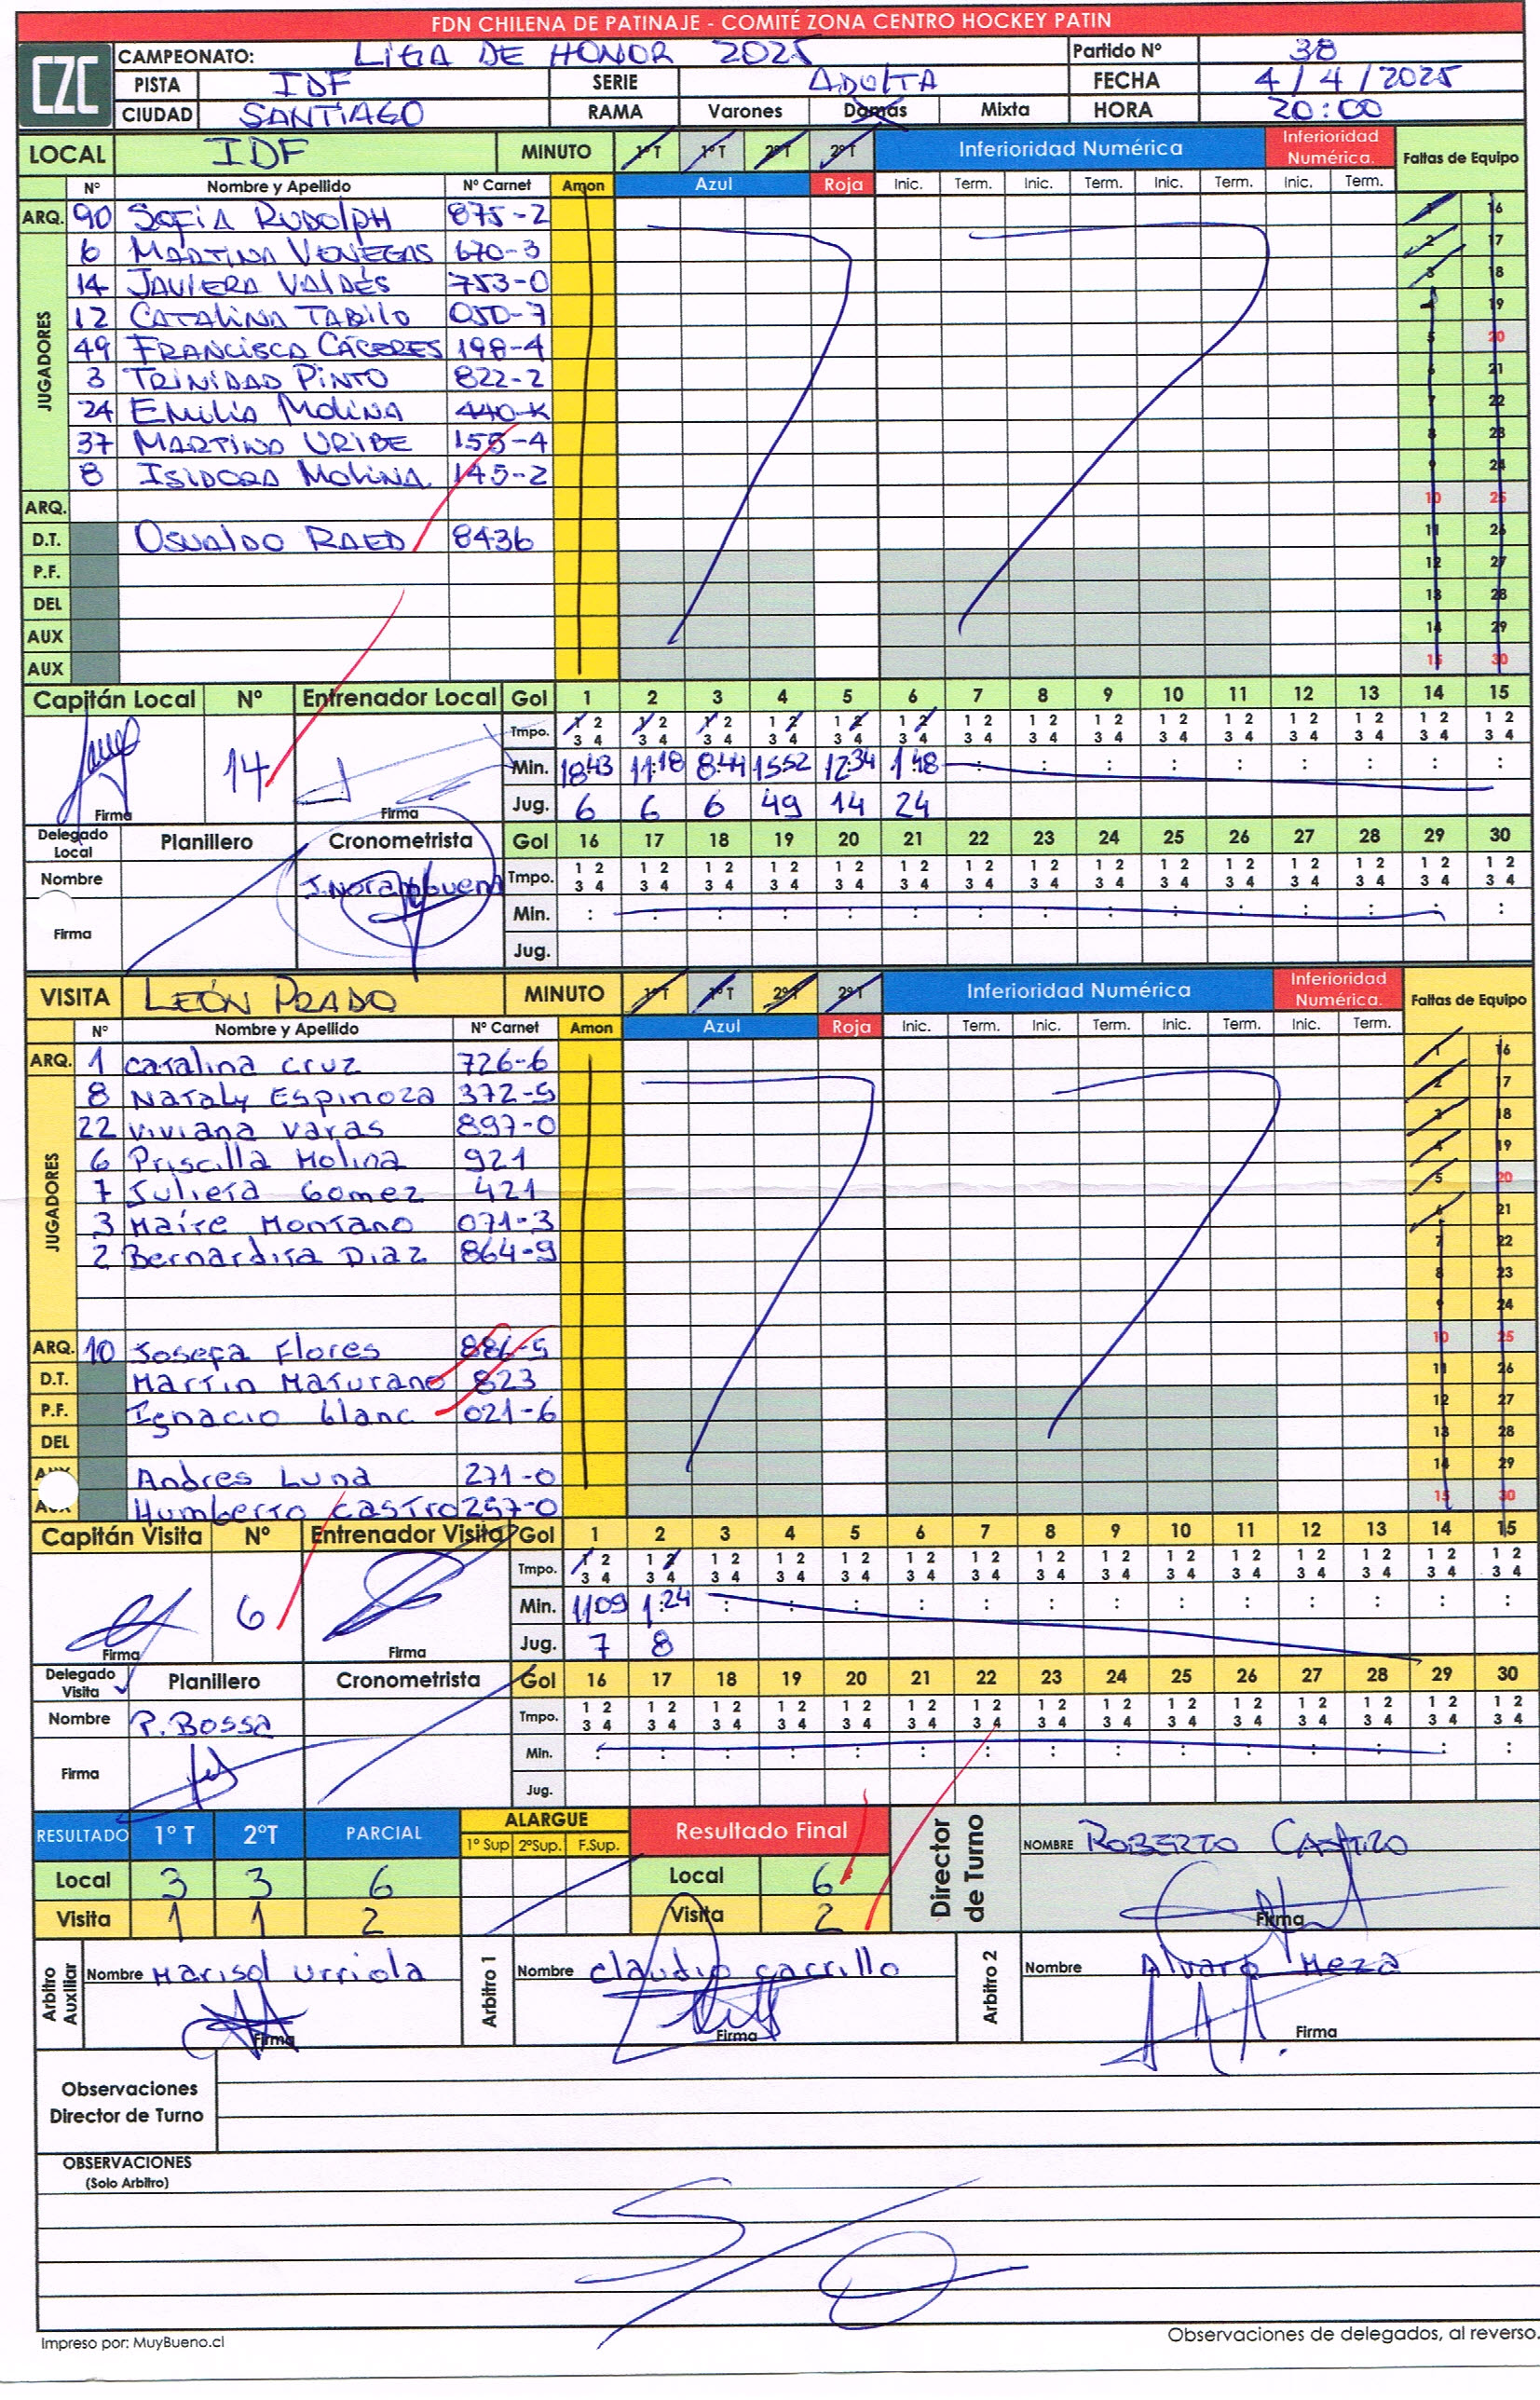 FDN CHILENA DE PATINAJE - COMITÉ ZONA CENTRO HOCKEY PATIN
CZC
CAMPEONATO: LIGA DE HONOR 2025 Partido Nº 38
PISTA IDF SERIE ADULTA FECHA 4/4/2025
CIUDAD SANTIAGO RAMA Varones Damas Mixta HORA 20:00
LOCAL IDF MINUTO 1ºT 1ºT 2ºT 2ºT Inferioridad Numérica Inferioridad Numérica. Faltas de Equipo
Nº Nombre y Apellido Nº Carnet Amon Azul Roja Inic. Term. Inic. Term. Inic. Term. Inic. Term.
JUGADORES
ARQ. 90 SOFÍA RUDOLPH 875-2 1 16
6 MARTINA VENEGAS 670-3 2 17
14 JAVIERA VALDÉS 753-0 3 18
12 CATALINA TABILO 050-7 4 19
49 FRANCISCA CÁCERES 198-4 5 20
3 TRINIDAD PINTO 822-2 6 21
24 EMILIA MOLINA 440-K 7 22
37 MARTINA URIBE 155-4 8 23
8 ISIDORA MOLINA 145-2 9 24
ARQ. 10 25
D.T. OSVALDO RAED 8436 11 26
P.F. 12 27
DEL 13 28
AUX 14 29
AUX 15 30
Capitán Local Nº Entrenador Local Gol 1 2 3 4 5 6 7 8 9 10 11 12 13 14 15
Tmpo. 1 2 1 2 1 2 1 2 1 2 1 2 1 2 1 2 1 2 1 2 1 2 1 2 1 2 1 2 1 2
3 4 3 4 3 4 3 4 3 4 3 4 3 4 3 4 3 4 3 4 3 4 3 4 3 4 3 4 3 4
14 Min. 18:43 11:18 8:44 15:52 12:34 1:48 : : : : : : : : :
Firma Firma Jug. 6 6 6 49 14 24
Delegado Local Planillero Cronometrista Gol 16 17 18 19 20 21 22 23 24 25 26 27 28 29 30
Nombre J. Norambuena Tmpo. 1 2 1 2 1 2 1 2 1 2 1 2 1 2 1 2 1 2 1 2 1 2 1 2 1 2 1 2 1 2
3 4 3 4 3 4 3 4 3 4 3 4 3 4 3 4 3 4 3 4 3 4 3 4 3 4 3 4 3 4
Firma Min. : : : : : : : : : : : : : : :
Jug.
VISITA LEÓN PRADO MINUTO 1ºT 1ºT 2ºT 2ºT Inferioridad Numérica Inferioridad Numérica. Faltas de Equipo
Nº Nombre y Apellido Nº Carnet Amon Azul Roja Inic. Term. Inic. Term. Inic. Term. Inic. Term.
JUGADORES
ARQ. 1 Catalina Cruz 726-6 1 16
8 Nataly Espinoza 372-5 2 17
22 Viviana Varas 897-0 3 18
6 Priscilla Molina 921 4 19
7 Julieta Gomez 421 5 20
3 Maite Montano 071-3 6 21
2 Bernardita Diaz 864-9 7 22
8 23
9 24
ARQ. 10 Josefa Flores 886-5 10 25
D.T. Martin Maturano 823 11 26
P.F. Ignacio blanc 021-6 12 27
DEL 13 28
Andres Luna 271-0 14 29
Humberto Castro 257-0 15 30
Capitán Visita Nº Entrenador Visita Gol 1 2 3 4 5 6 7 8 9 10 11 12 13 14 15
Tmpo. 1 2 1 2 1 2 1 2 1 2 1 2 1 2 1 2 1 2 1 2 1 2 1 2 1 2 1 2 1 2
3 4 3 4 3 4 3 4 3 4 3 4 3 4 3 4 3 4 3 4 3 4 3 4 3 4 3 4 3 4
6 Min. 11:09 1:24 : : : : : : : : : : : : :
Firma Firma Jug. 7 8
Delegado Visita Planillero Cronometrista Gol 16 17 18 19 20 21 22 23 24 25 26 27 28 29 30
Nombre P. Bossa Tmpo. 1 2 1 2 1 2 1 2 1 2 1 2 1 2 1 2 1 2 1 2 1 2 1 2 1 2 1 2 1 2
3 4 3 4 3 4 3 4 3 4 3 4 3 4 3 4 3 4 3 4 3 4 3 4 3 4 3 4 3 4
Firma Min. : : : : : : : : : : : : : : :
Jug.
RESULTADO 1º T 2ºT PARCIAL ALARGUE Resultado Final Director de Turno NOMBRE ROBERTO CASTRO
1º Sup 2ºSup. F.Sup.
Local 3 3 6 Local 6
Visita 1 1 2 Visita 2 Firma
Arbitro Auxiliar Nombre Marisol Urriola Arbitro 1 Nombre Claudio Carrillo Arbitro 2 Nombre Alvaro Meza
Firma Firma Firma
Observaciones
Director de Turno
OBSERVACIONES
(Solo Arbitro)
S/O
Impreso por: MuyBueno.cl Observaciones de delegados, al reverso.